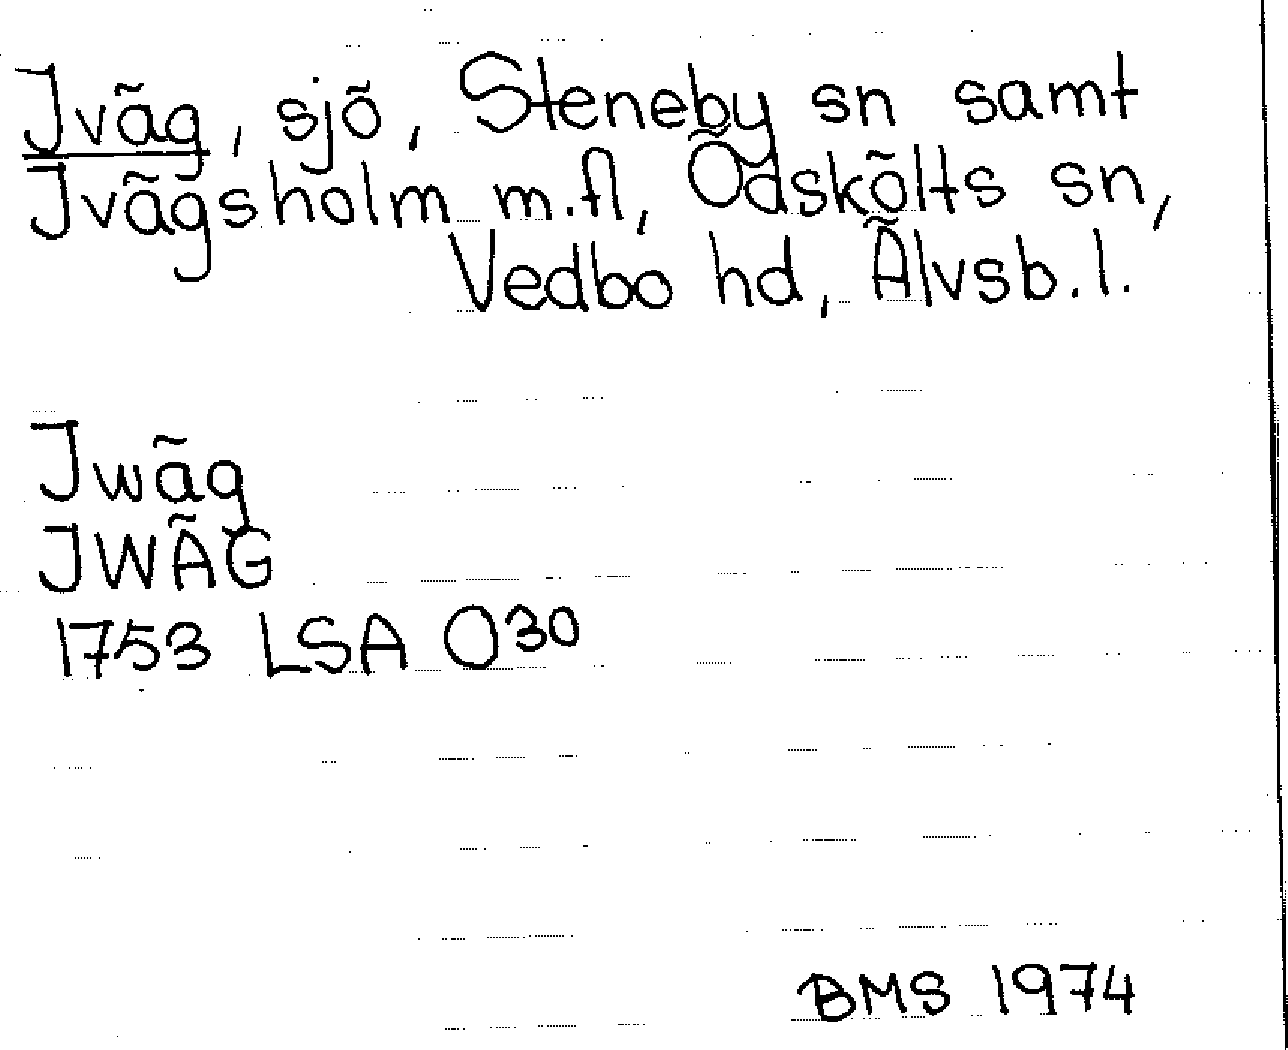 Jväg, sjö, Steneby sn samt
Jvägsholm m.fl, Ödskölts sn,
Vedbo hd, Älvsb.l.
Jwäg
JWÄG
1753 LSA O30
BMS 1974